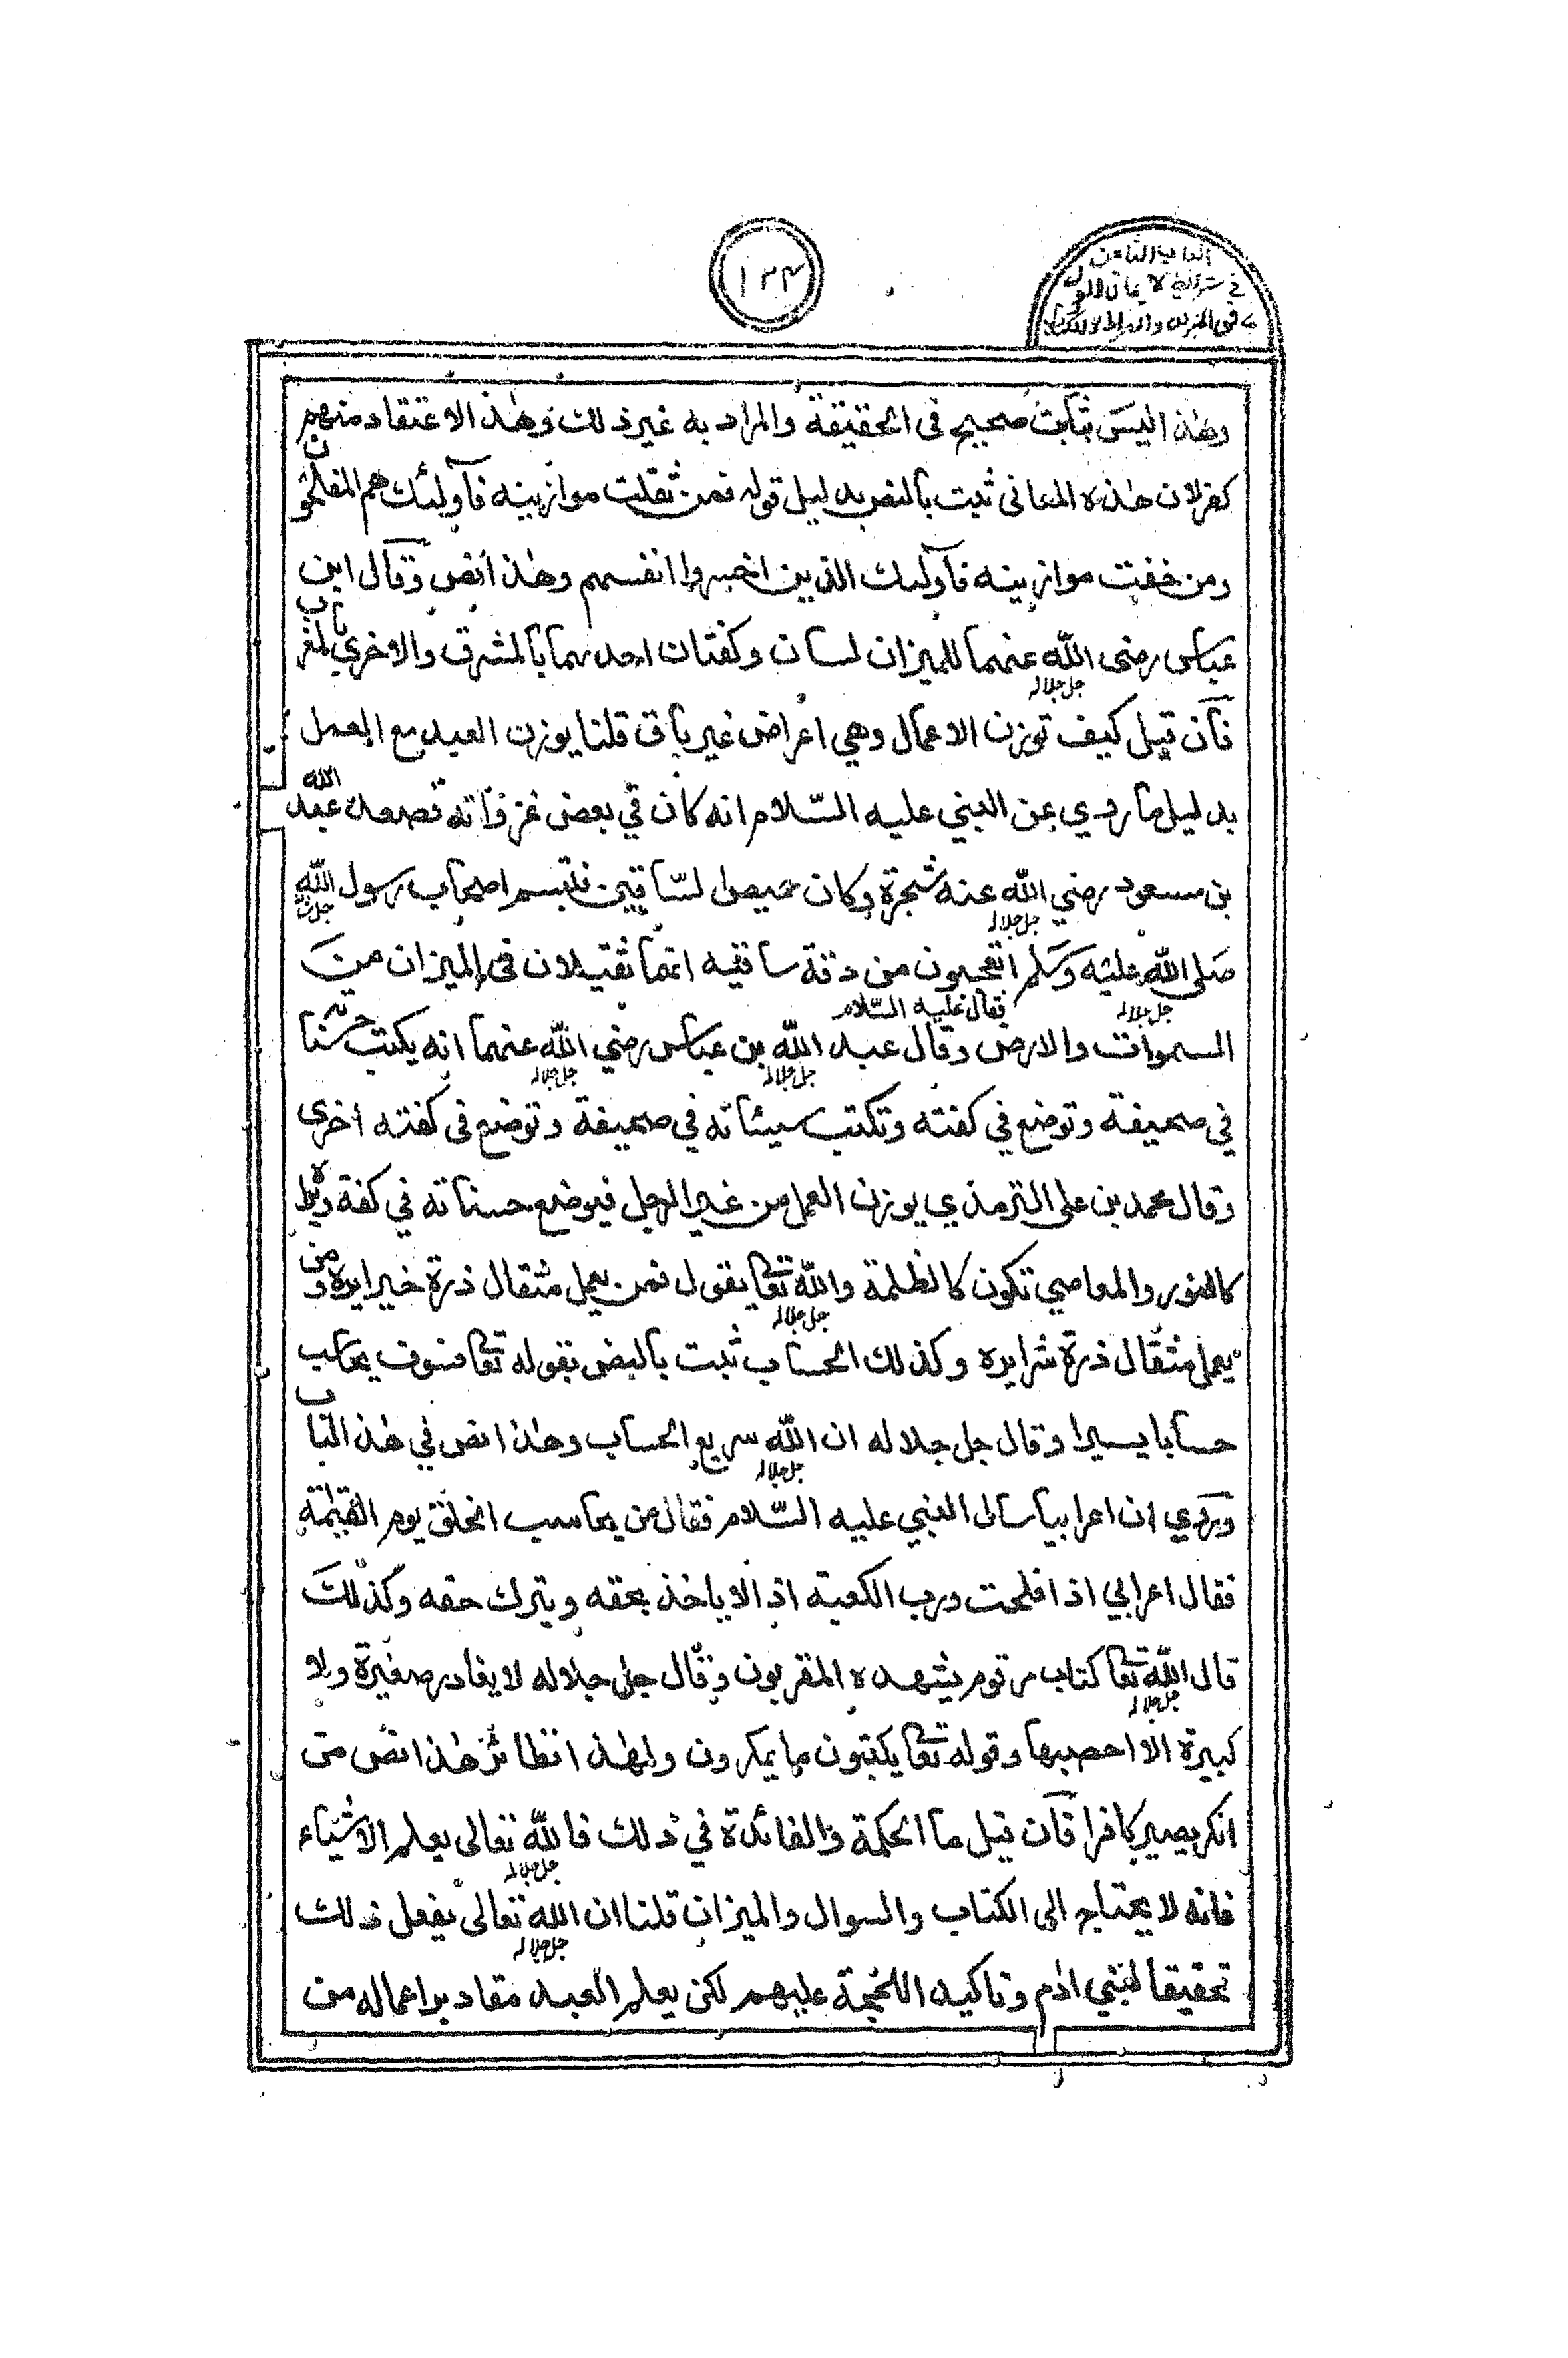 ١٣٤
في شرائط الايمان
وهذا ليس بثابت صحيح فى الحقيقة والمراد به غير ذلك وهذا الاعتقاد منهم
كفر لان هذه المعانى ثبت بالنص بدليل قوله فمن ثقلت موازينه فاولئك هم المفلحون
ومن خفت موازينه فاولئك الذين اخسروا انفسهم وهذا نص وقال ابن
عباس رضى الله عنهما للميزان لسان وكفتان احدىهما بالمشرق والاخرى بالمغرب
جل جلاله
فان قيل كيف توزن الاعمال وهي اعراض غير باق قلنا يوزن العبد مع العمل
بدليل ما روي عن النبي عليه السلام انه كان في بعض غزواته فصعد عبد الله
بن مسعود رضي الله عنه شجرة وكان حميصا لساقيين فتبسم اصحاب رسول الله
جل جلاله
صلى الله عليه وسلم اتعجبون من دقة ساقيه انهما ثقيلان فى الميزان من
جل جلاله فقال عليه السلام
السموات والارض وقال عبد الله بن عباس رضي الله عنهما انه يكتب حسناته
جل جلاله جل جلاله
في صحيفة وتوضع في كفته وتكتب سيئاته في صحيفة وتوضع فى كفته اخرى
وقال محمد بن على الترمذي يوزن العمل من غير الرجل فيوضع حسناته في كفة
كالنور والمعاصي تكون كالظلمة والله تعا يقول فمن يعمل مثقال ذرة خيرا يره ومن
جل جلاله
يعمل مثقال ذرة شرا يره وكذلك الحساب ثبت بالنص بقوله تعا فسوف يحاسب
حسابا يسيرا وقال جل جلاله ان الله سريع الحساب وهذا نص في هذ الباب
جل جلاله
وروي ان اعرابيا سال النبي عليه السلام فقال من يحاسب الخلق يوم القيمة
فقال اعرابي اذا افلحت ورب الكعبة اذ الا ياخذ بحقه ويترك حقه وكذلك
قال الله تعا كتاب مرقوم يشهده المقربون وقال جل جلاله لا يغادر صغيرة ولا
جل جلاله
كبيرة الا احصيها وقوله تعا يكتبون ما يمكرون ولهذا نظائر هذا نص من
انكر يصير كافرا فان قيل ما الحكمة والفائدة في ذلك فالله تعالى يعلم الاشياء
جل جلاله
فانه لا يحتاج الى الكتاب والسوال والميزان قلنا ان الله تعالى يفعل ذلك
جل جلاله
تحقيقا لبني ادم وتاكيد اللحجة عليهم لكن يعلم العبد مقادير اعماله من